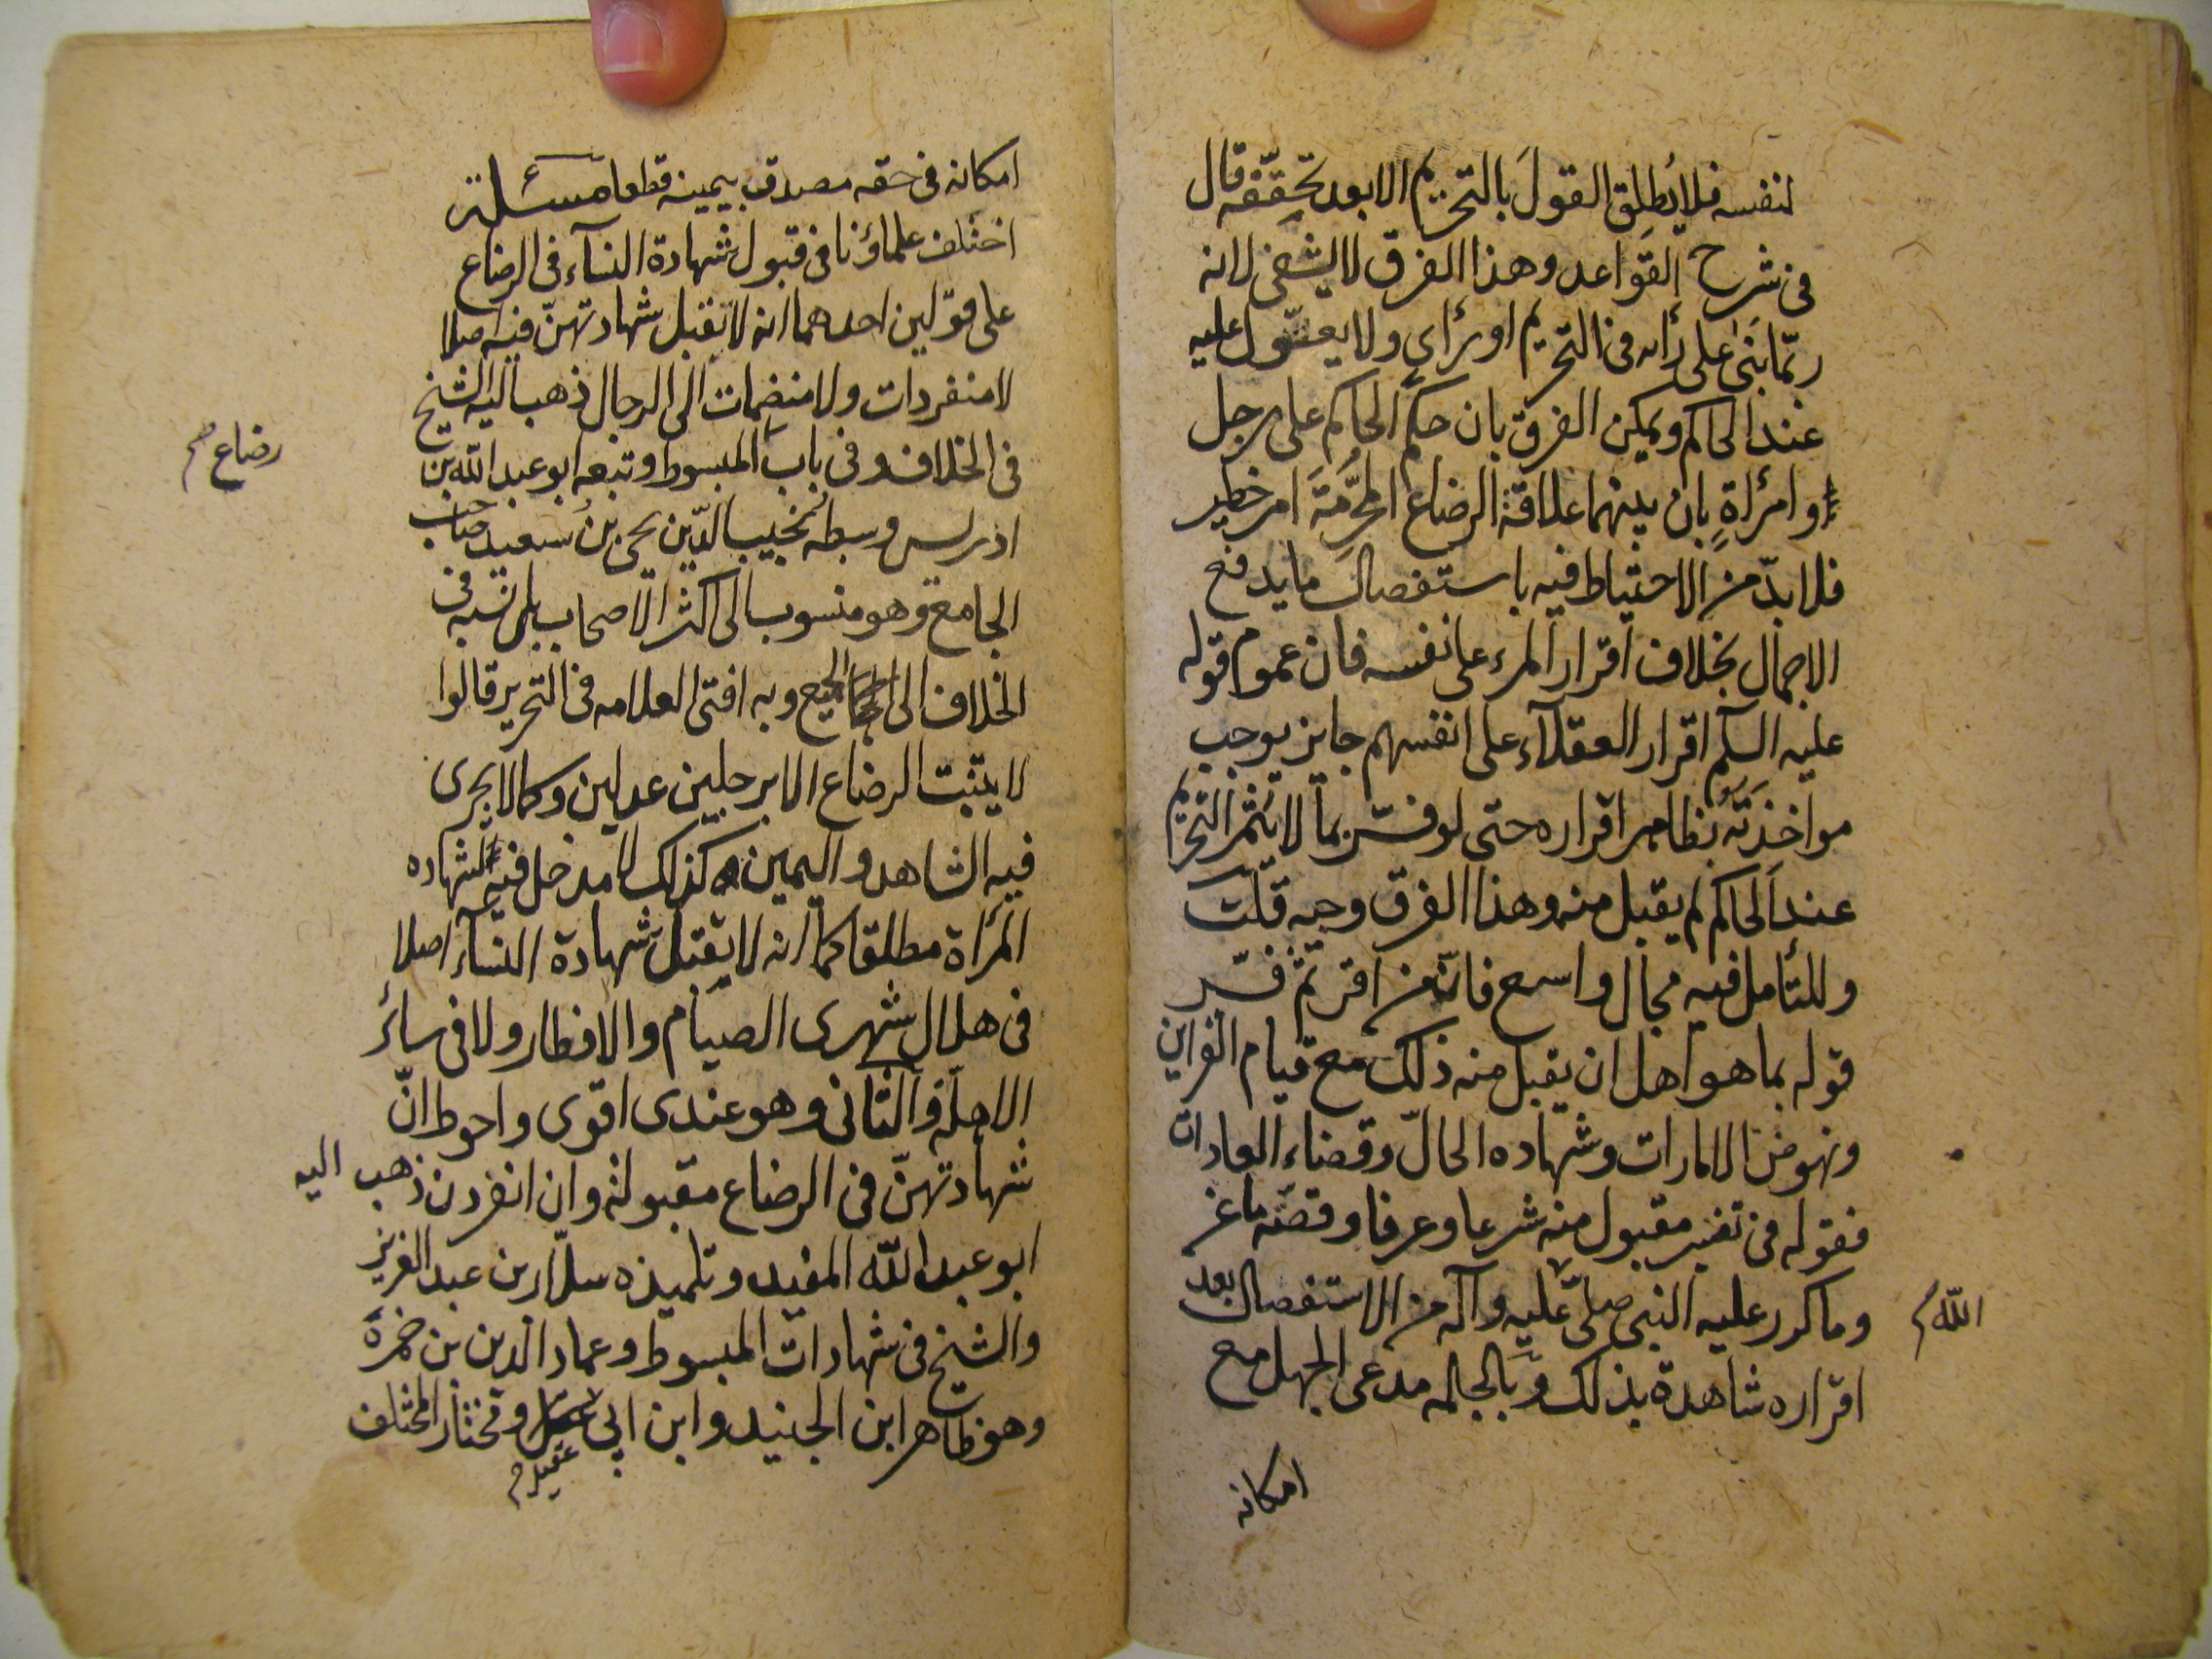 لنفسه فلا يُطلِق القولَ بالتحريم الا بعد تحَقّقه قال
فى شرح القواعد وهذا الفرق لا يشفى لانه
ربّما بَنىٰ على رأيه فى التحريم او رأى ولا يعوّل عليه
عند الحاكم ويمكن الفرق بان حكم الحاكم على رجل
او امرأةٍ بان بينهما علاقة الرضاع المحرّمة امر خطير
فلا بدّ من الاحتياط فيه باستفصال ما يدفع
الاجمال بخلاف اقرار المرء على نفسه فان عموم قوله
عليه السلم اقرار العقلآء على انفسهم جايز يوجب
مواخذته بظاهر اقراره حتى لو فسّر بما لا يُثمر التحريم
عند الحاكم لم يقبل منه وهذا الفرق وجيه قلت
وللتأمل فيه مجال واسع فانّ من اقر ثمّ فسّر
قوله بما هو اهل ان يقبل منه ذلك مع قيام القراين
ونهوض الامارات وشهاده الحالّ وقضاء العادات
فقوله فى تفسيره مقبول منه شرعا وعرفا وقصّة ماعز
وما كرر عليه النبى صلىّ عليه وآله من الاستفصال بعد
اللّه
اقراره شاهدة بذلك وبالجاله مدعى الجهل مع
امكانه
امكانه فى حقه مصدق بيمينه قطعا مسئلة
اختلف علماؤنا فى قبول شهادة النسآء فى الرضاع
على قولين احدهما انه لا تقبل شهادتهنّ فيه اصلا
لا منفردات ولا منضمات الى الرجال ذهب اليه الشيخ
فى الخلاف وفى باب المبسوط وتبعه ابو عبد اللّه بن
رضاع
ادريس وسبطه نجيب الدّين يحيى بن سعيد صاحب
الجامع وهو منسوب الى اكثر الاصحاب بل نسبه فى
الخلاف الى الجميع وبه افتى العلامه فى التحرير قالوا
لا يثبت الرضاع الا برجلين عدلين وكما لا يجرى
فيه الشاهد واليمين كذلك لا مدخل فيه لشهاده
المرأة مطلقا كما انه لا يقبل شهادة النسآء اصلا
فى هلال شهرى الصيام والافطار ولا فى سائر
الاهلّة والثانى وهو عندى اقوى واحوط انّ
شهادتهنّ فى الرضاع مقبولة وان انفردن ذهب اليه
ابو عبد اللّه المفيد وتلميذه سلّار بن عبد العزيز
والشيخ فى شهادات المبسوط وعماد الدين بن حمزة
وهو ظاهر ابن الجنيد وابن ابى ومختار المختلف
عقيل